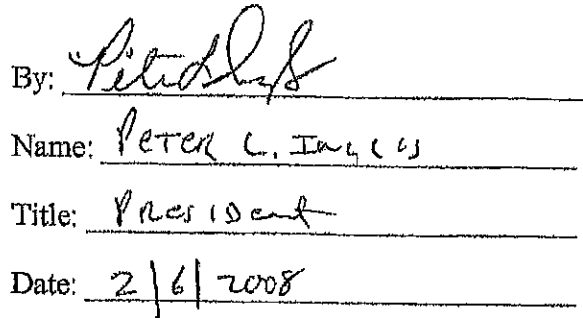 By:
Name: PETER L. INGLIS
Title: President
Date: 2/6/2008